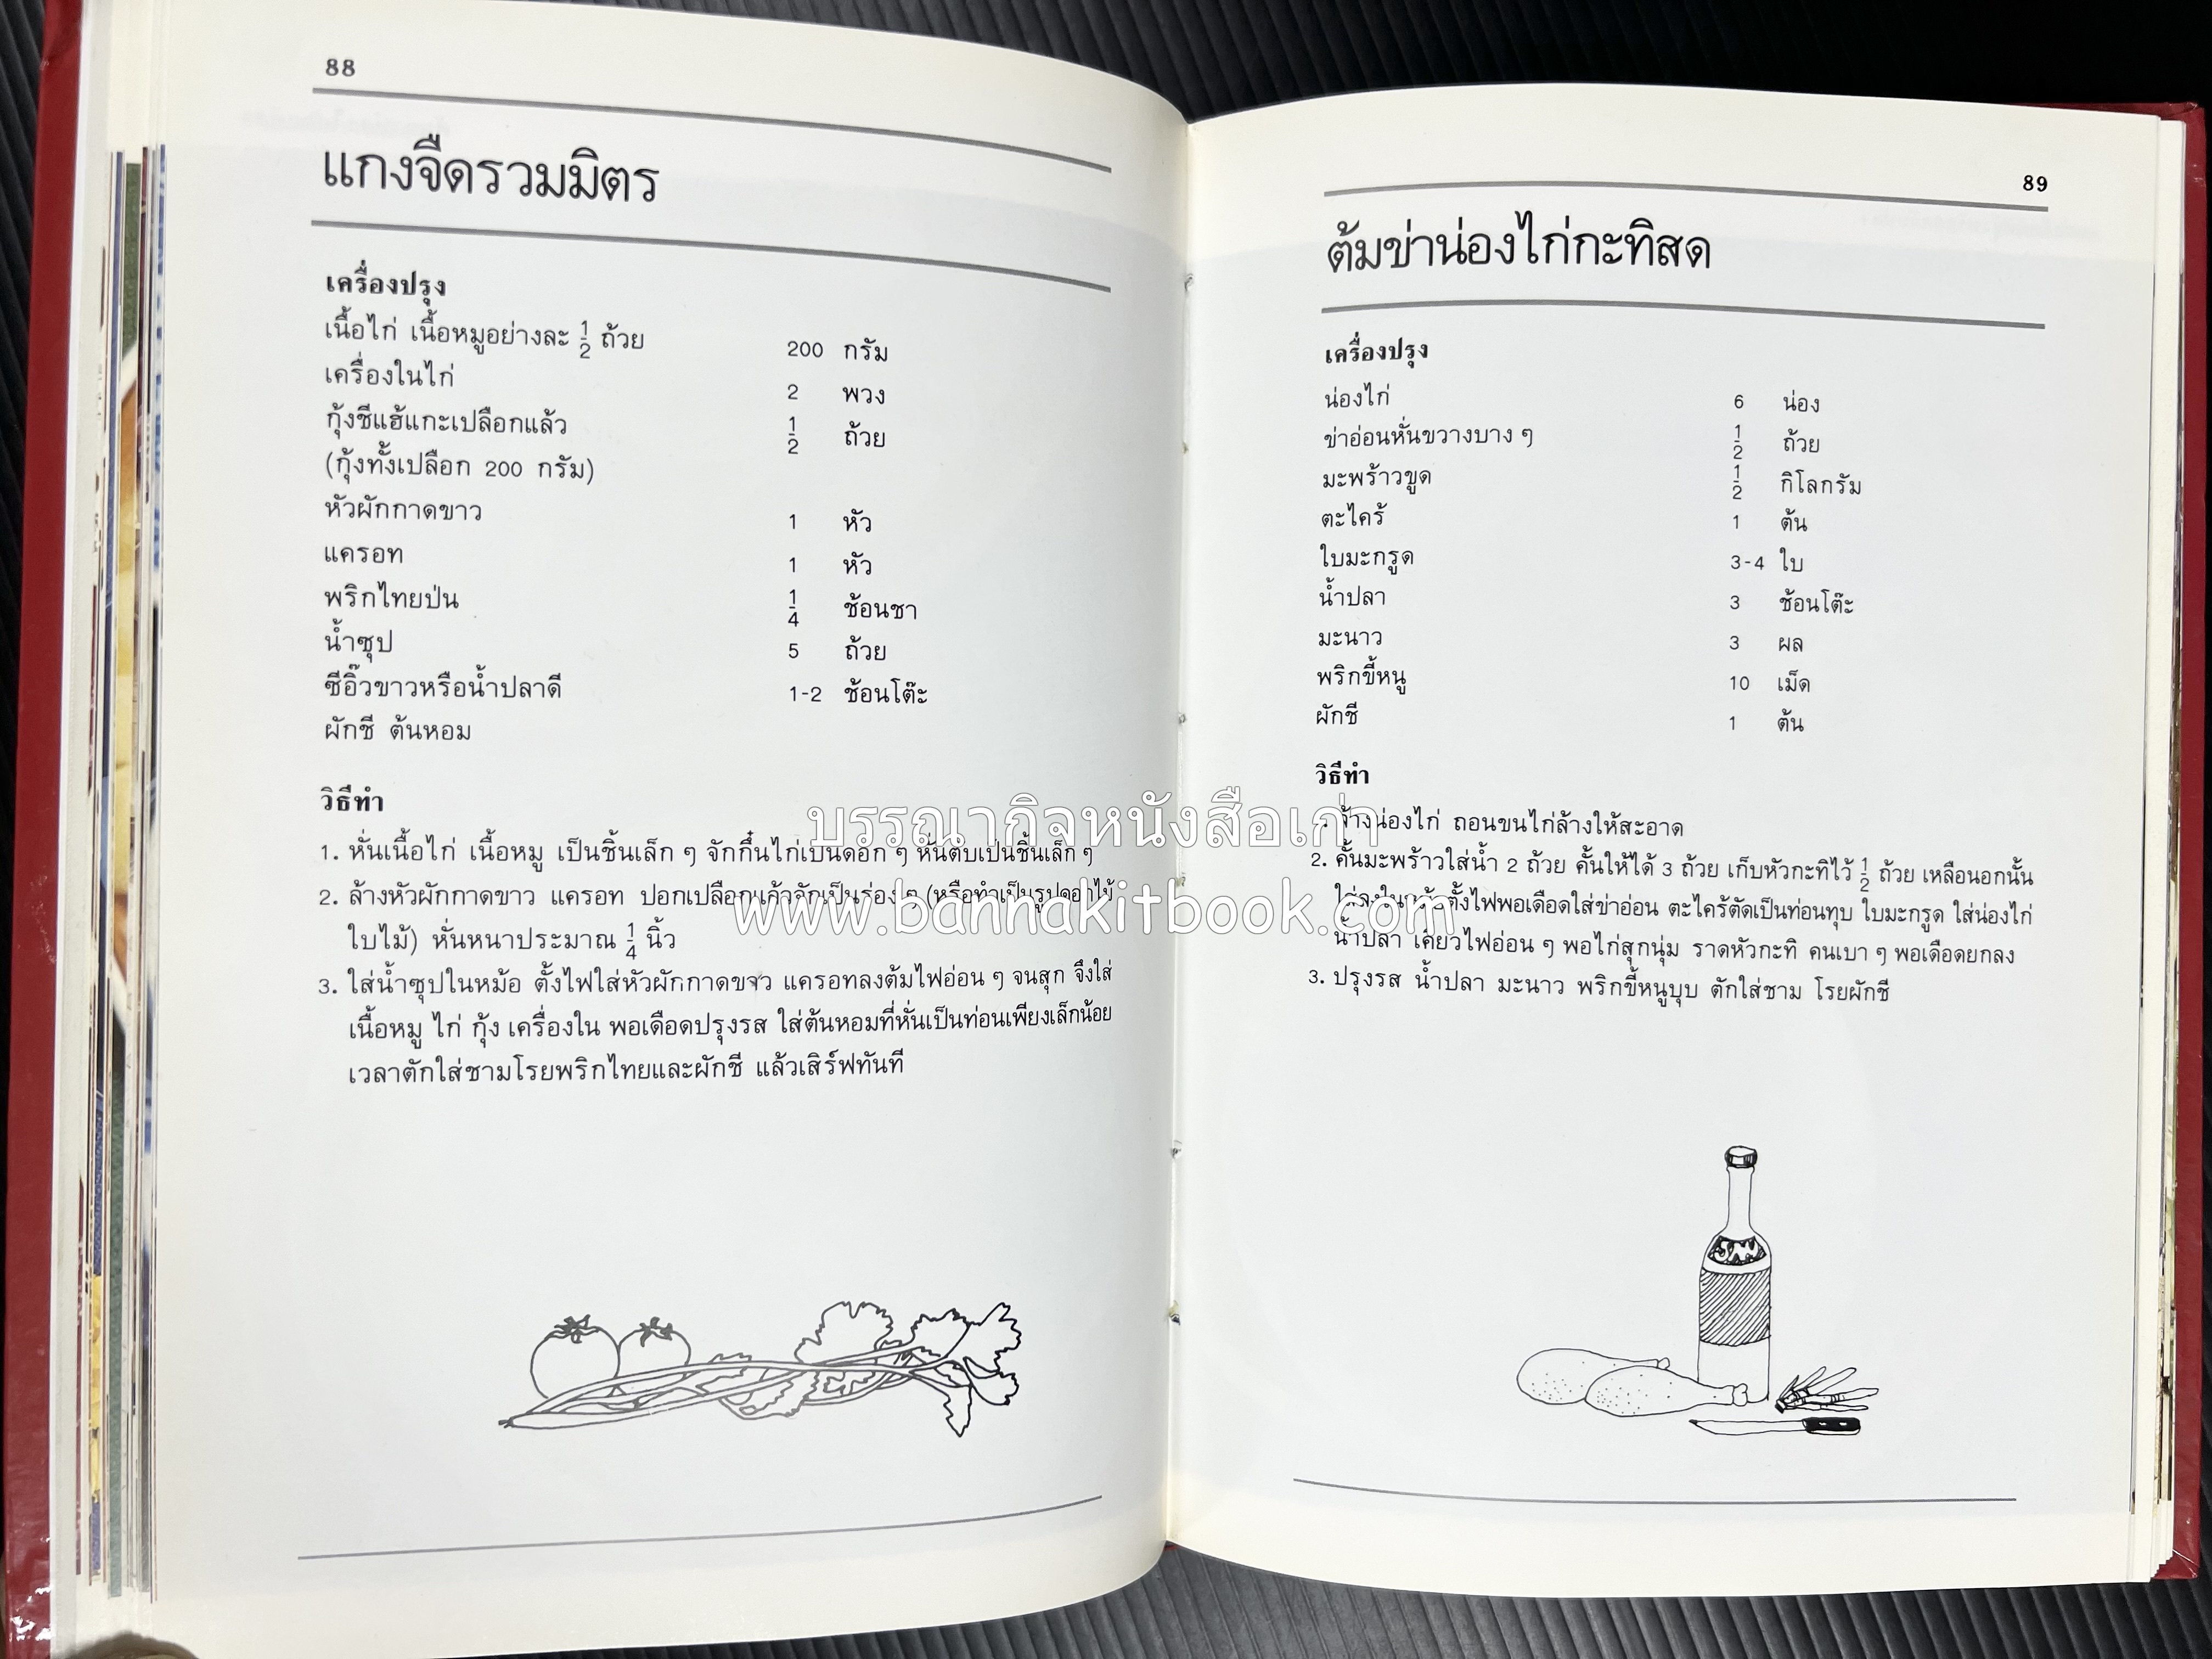 88
แกงจืดรวมมิตร
เครื่องปรุง
เนื้อไก่ เนื้อหมูอย่างละ 1/2 ถ้วย 200 กรัม
เครื่องในไก่ 2 พวง
กุ้งชีแฮ้แกะเปลือกแล้ว 1/2 ถ้วย
(กุ้งทั้งเปลือก 200 กรัม)
หัวผักกาดขาว 1 หัว
แครอท 1 หัว
พริกไทยป่น 1/4 ช้อนชา
น้ำซุป 5 ถ้วย
ซีอิ๊วขาวหรือน้ำปลาดี 1-2 ช้อนโต๊ะ
ผักชี ต้นหอม
วิธีทำ
1. หั่นเนื้อไก่ เนื้อหมู เป็นชิ้นเล็ก ๆ จักกึ๋นไก่เป็นดอก ๆ หั่นตับเป็นชิ้นเล็ก ๆ
2. ล้างหัวผักกาดขาว แครอท ปอกเปลือกแล้วจักเป็นร่อง ๆ (หรือทำเป็นรูปดอกไม้
ใบไม้) หั่นหนาประมาณ 1/4 นิ้ว
3. ใส่น้ำซุปในหม้อ ตั้งไฟใส่หัวผักกาดขาว แครอทลงต้มไฟอ่อน ๆ จนสุก จึงใส่
เนื้อหมู ไก่ กุ้ง เครื่องใน พอเดือดปรุงรส ใส่ต้นหอมที่หั่นเป็นท่อนเพียงเล็กน้อย
เวลาตักใส่ชามโรยพริกไทยและผักชี แล้วเสิร์ฟทันที
89
ต้มข่าน่องไก่กะทิสด
เครื่องปรุง
น่องไก่ 6 น่อง
ข่าอ่อนหั่นขวางบาง ๆ 1/2 ถ้วย
มะพร้าวขูด 1/2 กิโลกรัม
ตะไคร้ 1 ต้น
ใบมะกรูด 3-4 ใบ
น้ำปลา 3 ช้อนโต๊ะ
มะนาว 3 ผล
พริกขี้หนู 10 เม็ด
ผักชี 1 ต้น
วิธีทำ
ล้างน่องไก่ ถอนขนไก่ล้างให้สะอาด
2. คั้นมะพร้าวใส่น้ำ 2 ถ้วย คั้นให้ได้ 3 ถ้วย เก็บหัวกะทิไว้ 1/2 ถ้วย เหลือนอกนั้น
ใส่ลงในหม้อตั้งไฟพอเดือดใส่ข่าอ่อน ตะไคร้ตัดเป็นท่อนทุบ ใบมะกรูด ใส่น่องไก่
น้ำปลา เคี่ยวไฟอ่อน ๆ พอไก่สุกนุ่ม ราดหัวกะทิ คนเบา ๆ พอเดือดยกลง
3. ปรุงรส น้ำปลา มะนาว พริกขี้หนูบุบ ตักใส่ชาม โรยผักชี
บรรณากิจหนังสือเก่า
www.bannakitbook.com